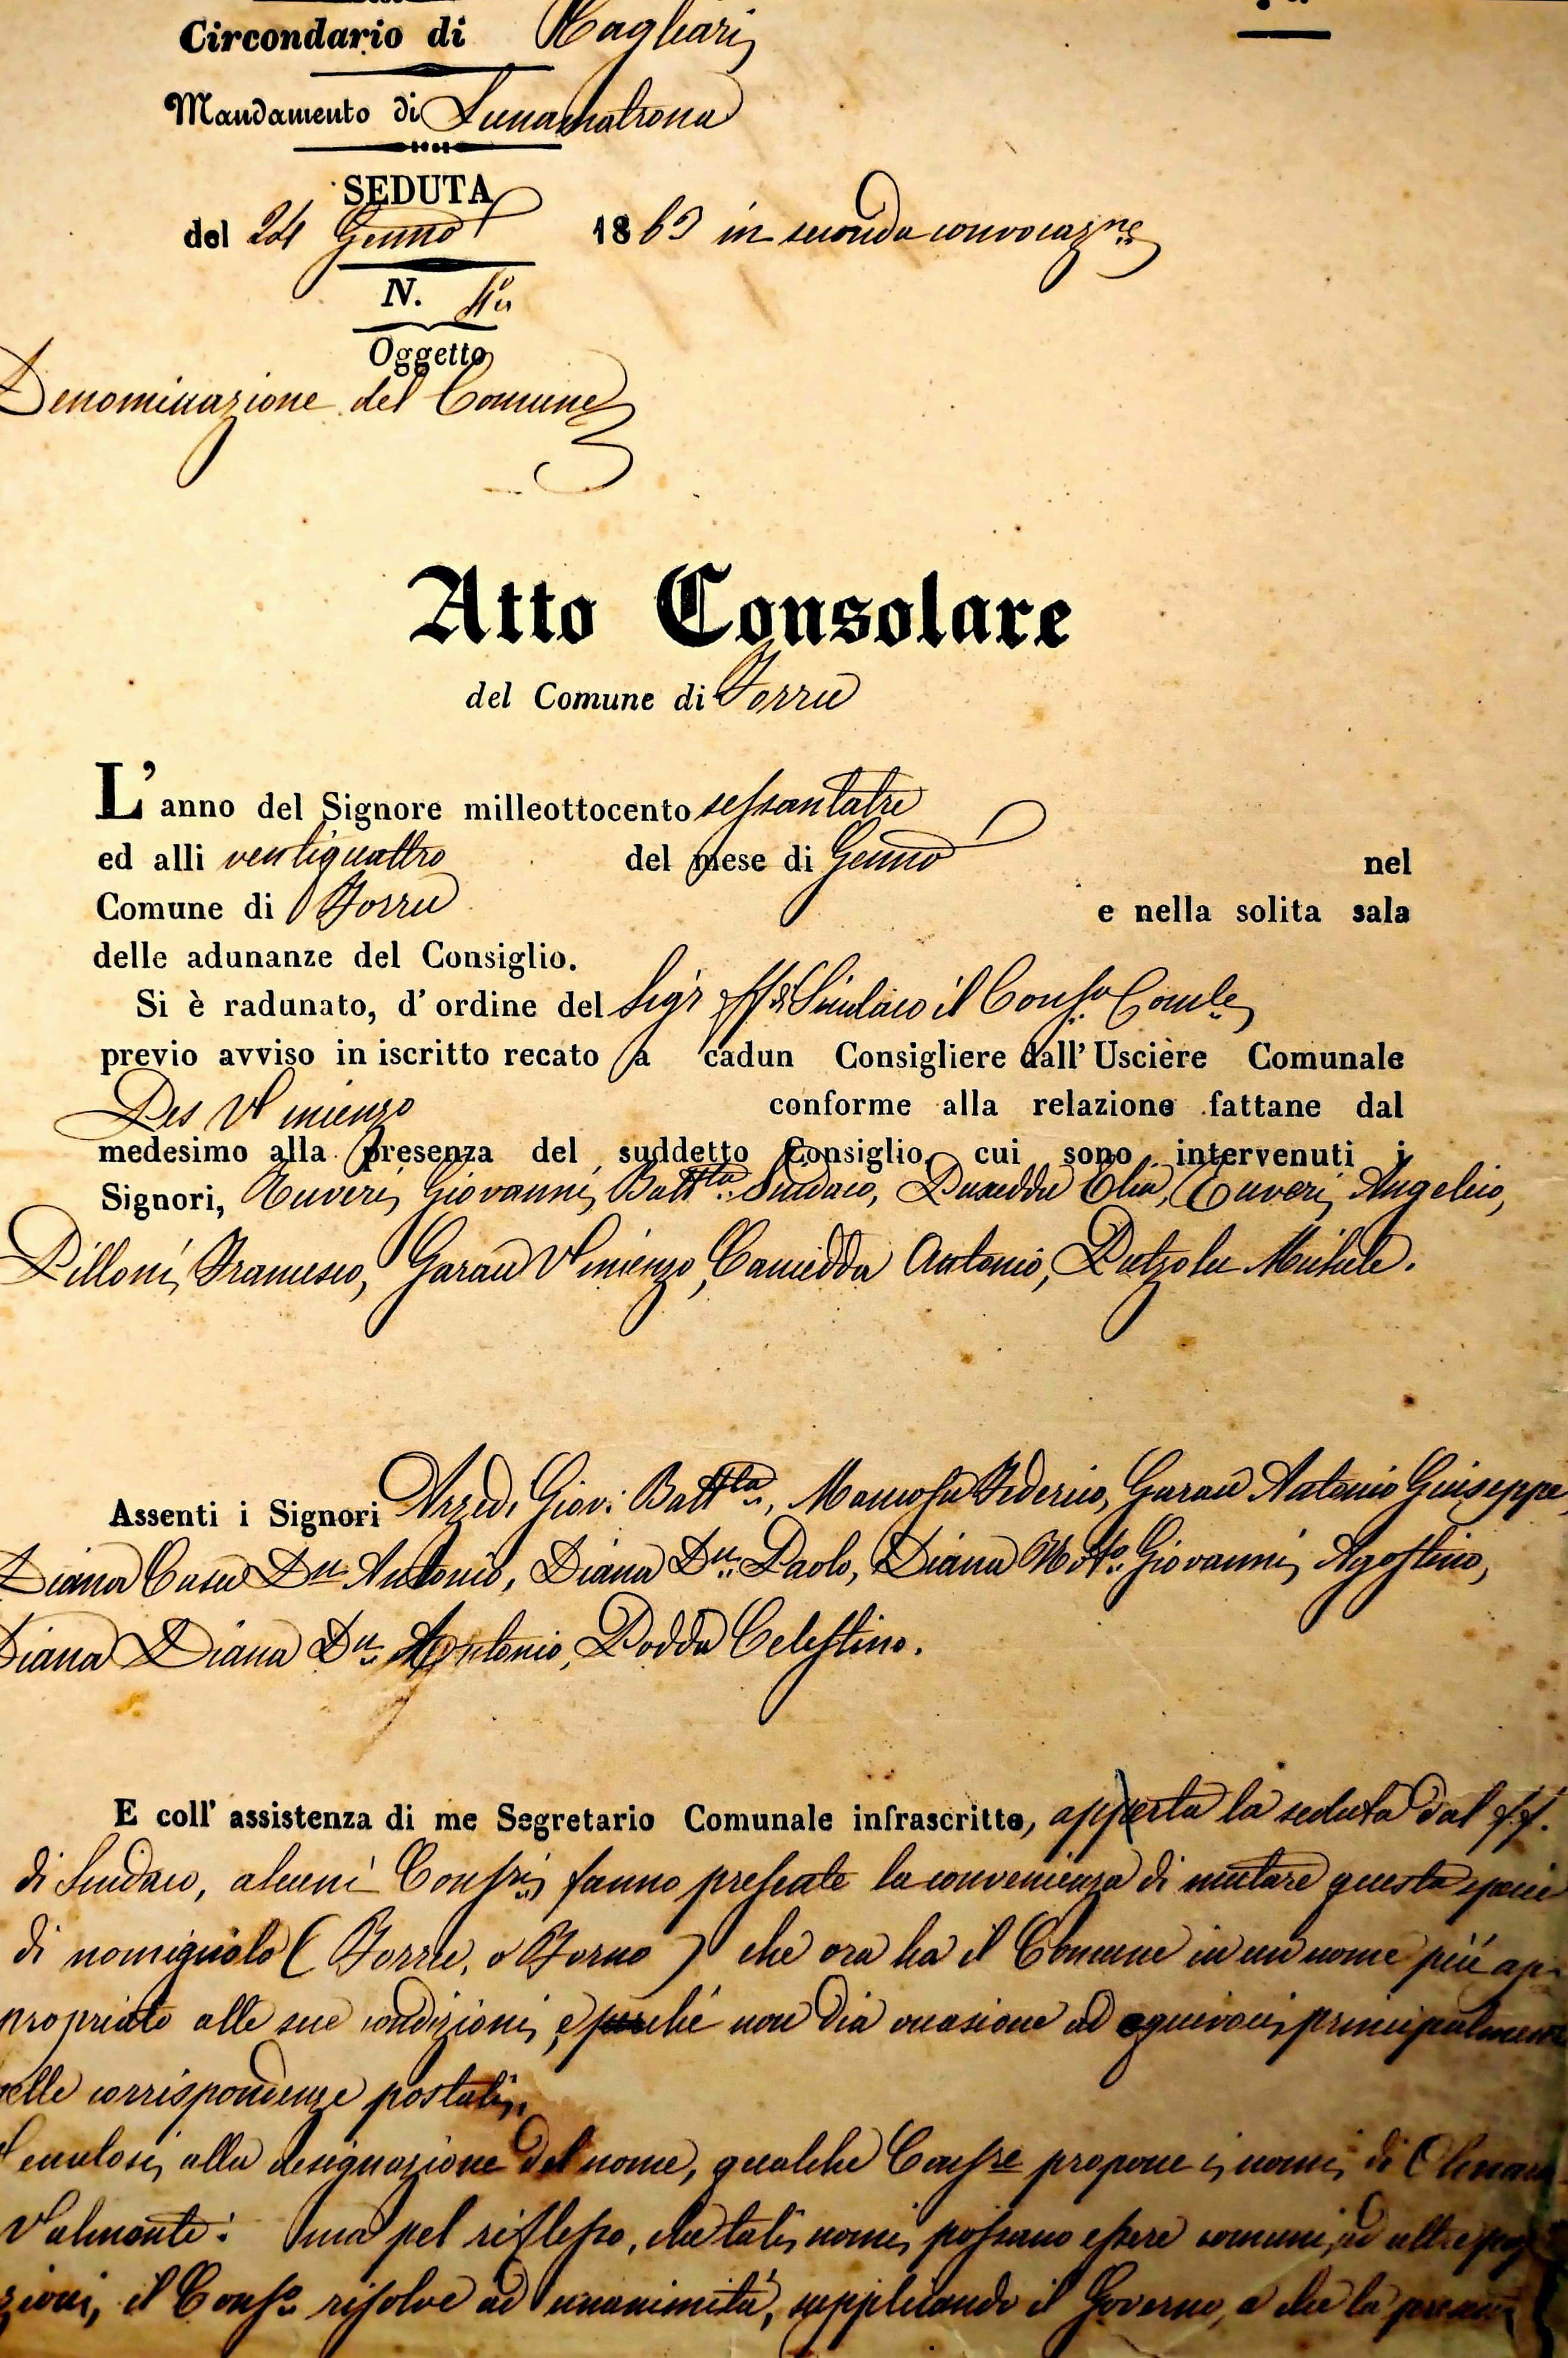 Circondario di Cagliari
Mandamento di Lunamatrona
SEDUTA
del 24 Gennº 1863 in seconda convocazne
N.
Oggetto
Denominazione del Comune
Atto Consolare
del Comune di Forru
L'anno del Signore milleottocento sessantatre
ed alli ventiquattro del mese di Gennº nel
Comune di Forru e nella solita sala
delle adunanze del Consiglio.
Si è radunato, d'ordine del Sigr ff di Sindaco il Consº Comle
previo avviso in iscritto recato a cadun Consigliere dall'Usciere Comunale
Vincenzo conforme alla relazione fattane dal
medesimo alla presenza del suddetto Consiglio, cui sono intervenuti i
Signori, Tuveri Giovanni Battta Sindaco, Puxeddu Elia, Tuveri Angelico,
Pilloni Francesco, Garau Vincenzo, Caneddu Antonio, Putzolu Michele.
Assenti i Signori Arzedi Giov: Battta, Mancosu Federico, Garau Antonio Giuseppe,
Diana Casu Dn Antonio, Diana Dn Paolo, Diana Giovanni Agostino,
Diana Diana Dn Antonio, Podda Celestino.
E coll'assistenza di me Segretario Comunale infrascritto, apperta la seduta dal ff.
di Sindaco, alcuni Consri fanno presente la convenienza di mutare questa specie
di nomignolo (Forru, o Forno) che ora ha il Comune in un nome più ap-
propriato alle sue condizioni, e perché non dia occasione ad equivoci principalmente
nelle corrispondenze postali.
Venutosi alla designazione del nome, qualche Consre propone i nomi di
Valmonte: ma pel riflesso, che tali nomi possano essere comuni ad altre
il Consº risolve ad unanimità, supplicando il Governo, a che la